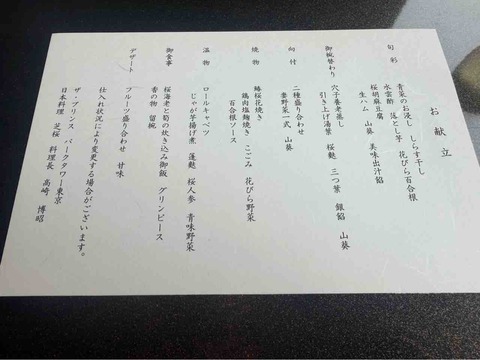 お献立
旬彩
青菜のお浸し しらす干し
水雲酢 落とし芋 花びら百合根
桜胡麻豆腐
生ハム 山葵 美味出汁餡
御椀替わり
穴子養老蒸し
引き上げ湯葉 桜麩 三つ葉 銀餡 山葵
向付
二種盛り合わせ
妻野菜一式 山葵
焼物
鰆桜花焼き
鶏肉塩麹焼き こごみ 花びら野菜
百合根ソース
温物
ロールキャベツ
じゃが芋揚げ煮 蓬麩 桜人参 青味野菜
御食事
桜海老と筍の炊き込み御飯 グリンピース
香の物 留椀
デザート
フルーツ盛り合わせ 甘味
仕入れ状況により変更する場合がございます。
ザ・プリンス パークタワー東京
日本料理 芝桜 料理長 高崎 博昭